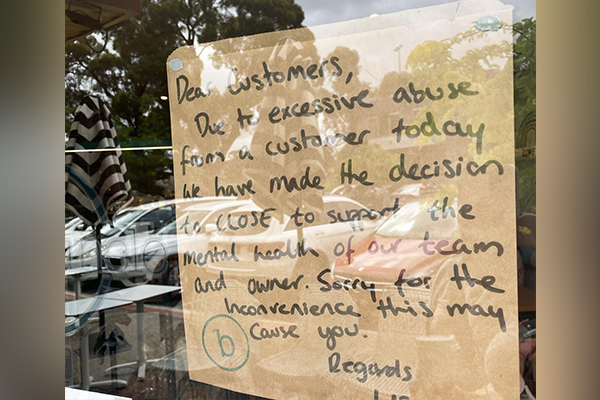 Dear Customers,
Due to excessive abuse
from a customer today
we have made the decision
to CLOSE to support the
mental health of our team
and owner. Sorry for the
Inconvenience this may
cause you.
b
Regards